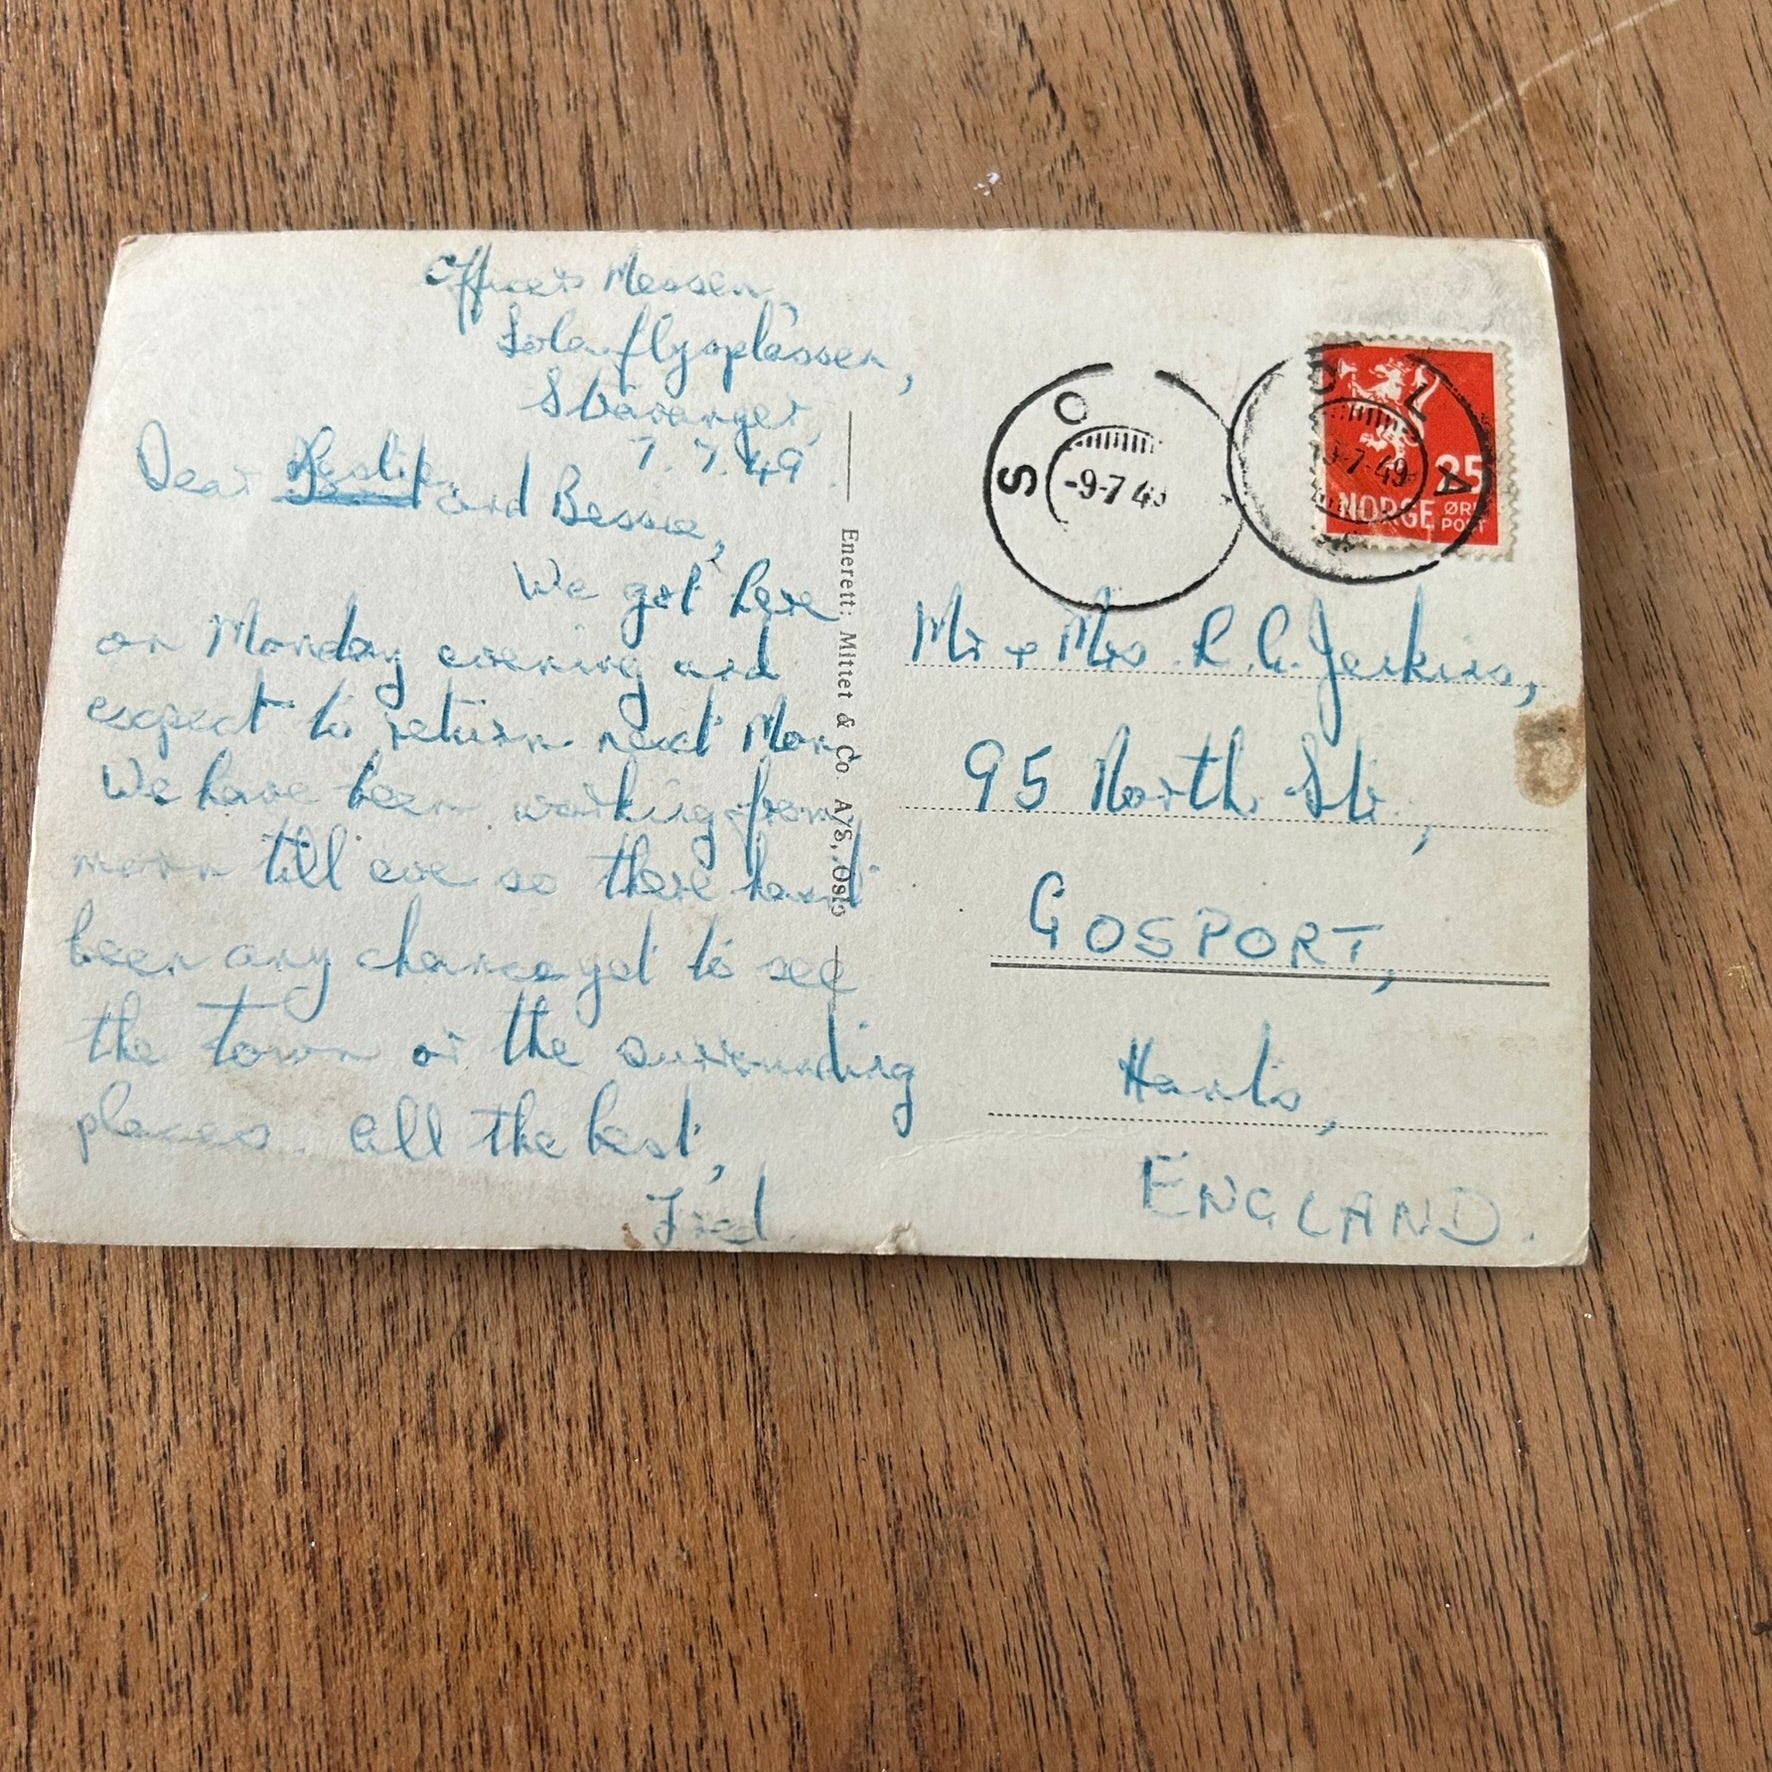 Officers Messen,
Sola flyoplassen,
Stavanger,
7. 7. 49.
Dear Leslie and Bessie,
We got here
on Monday evening and
expect to return next Mon.
We have been working from
morn till eve so there hasnt
been any chance yet to see
the town or the surrounding
places. All the best,
Fred.
Enerett: Mittet & Co. A/S, Oslo
SO
-9-7 49
OLA
-7-49
25
NORGE ØRE
POST
Mr + Mrs R. G. Jerkins,
95 North St.,
GOSPORT,
Hants,
ENGLAND.